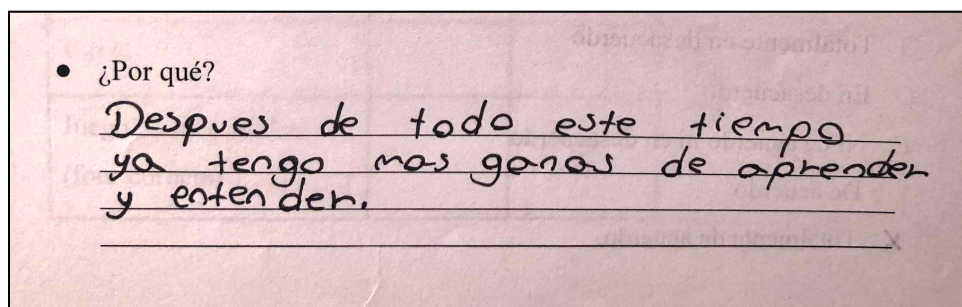 • ¿Por qué?
Despues de todo este tiempo
ya tengo mas ganas de aprender
y entender.